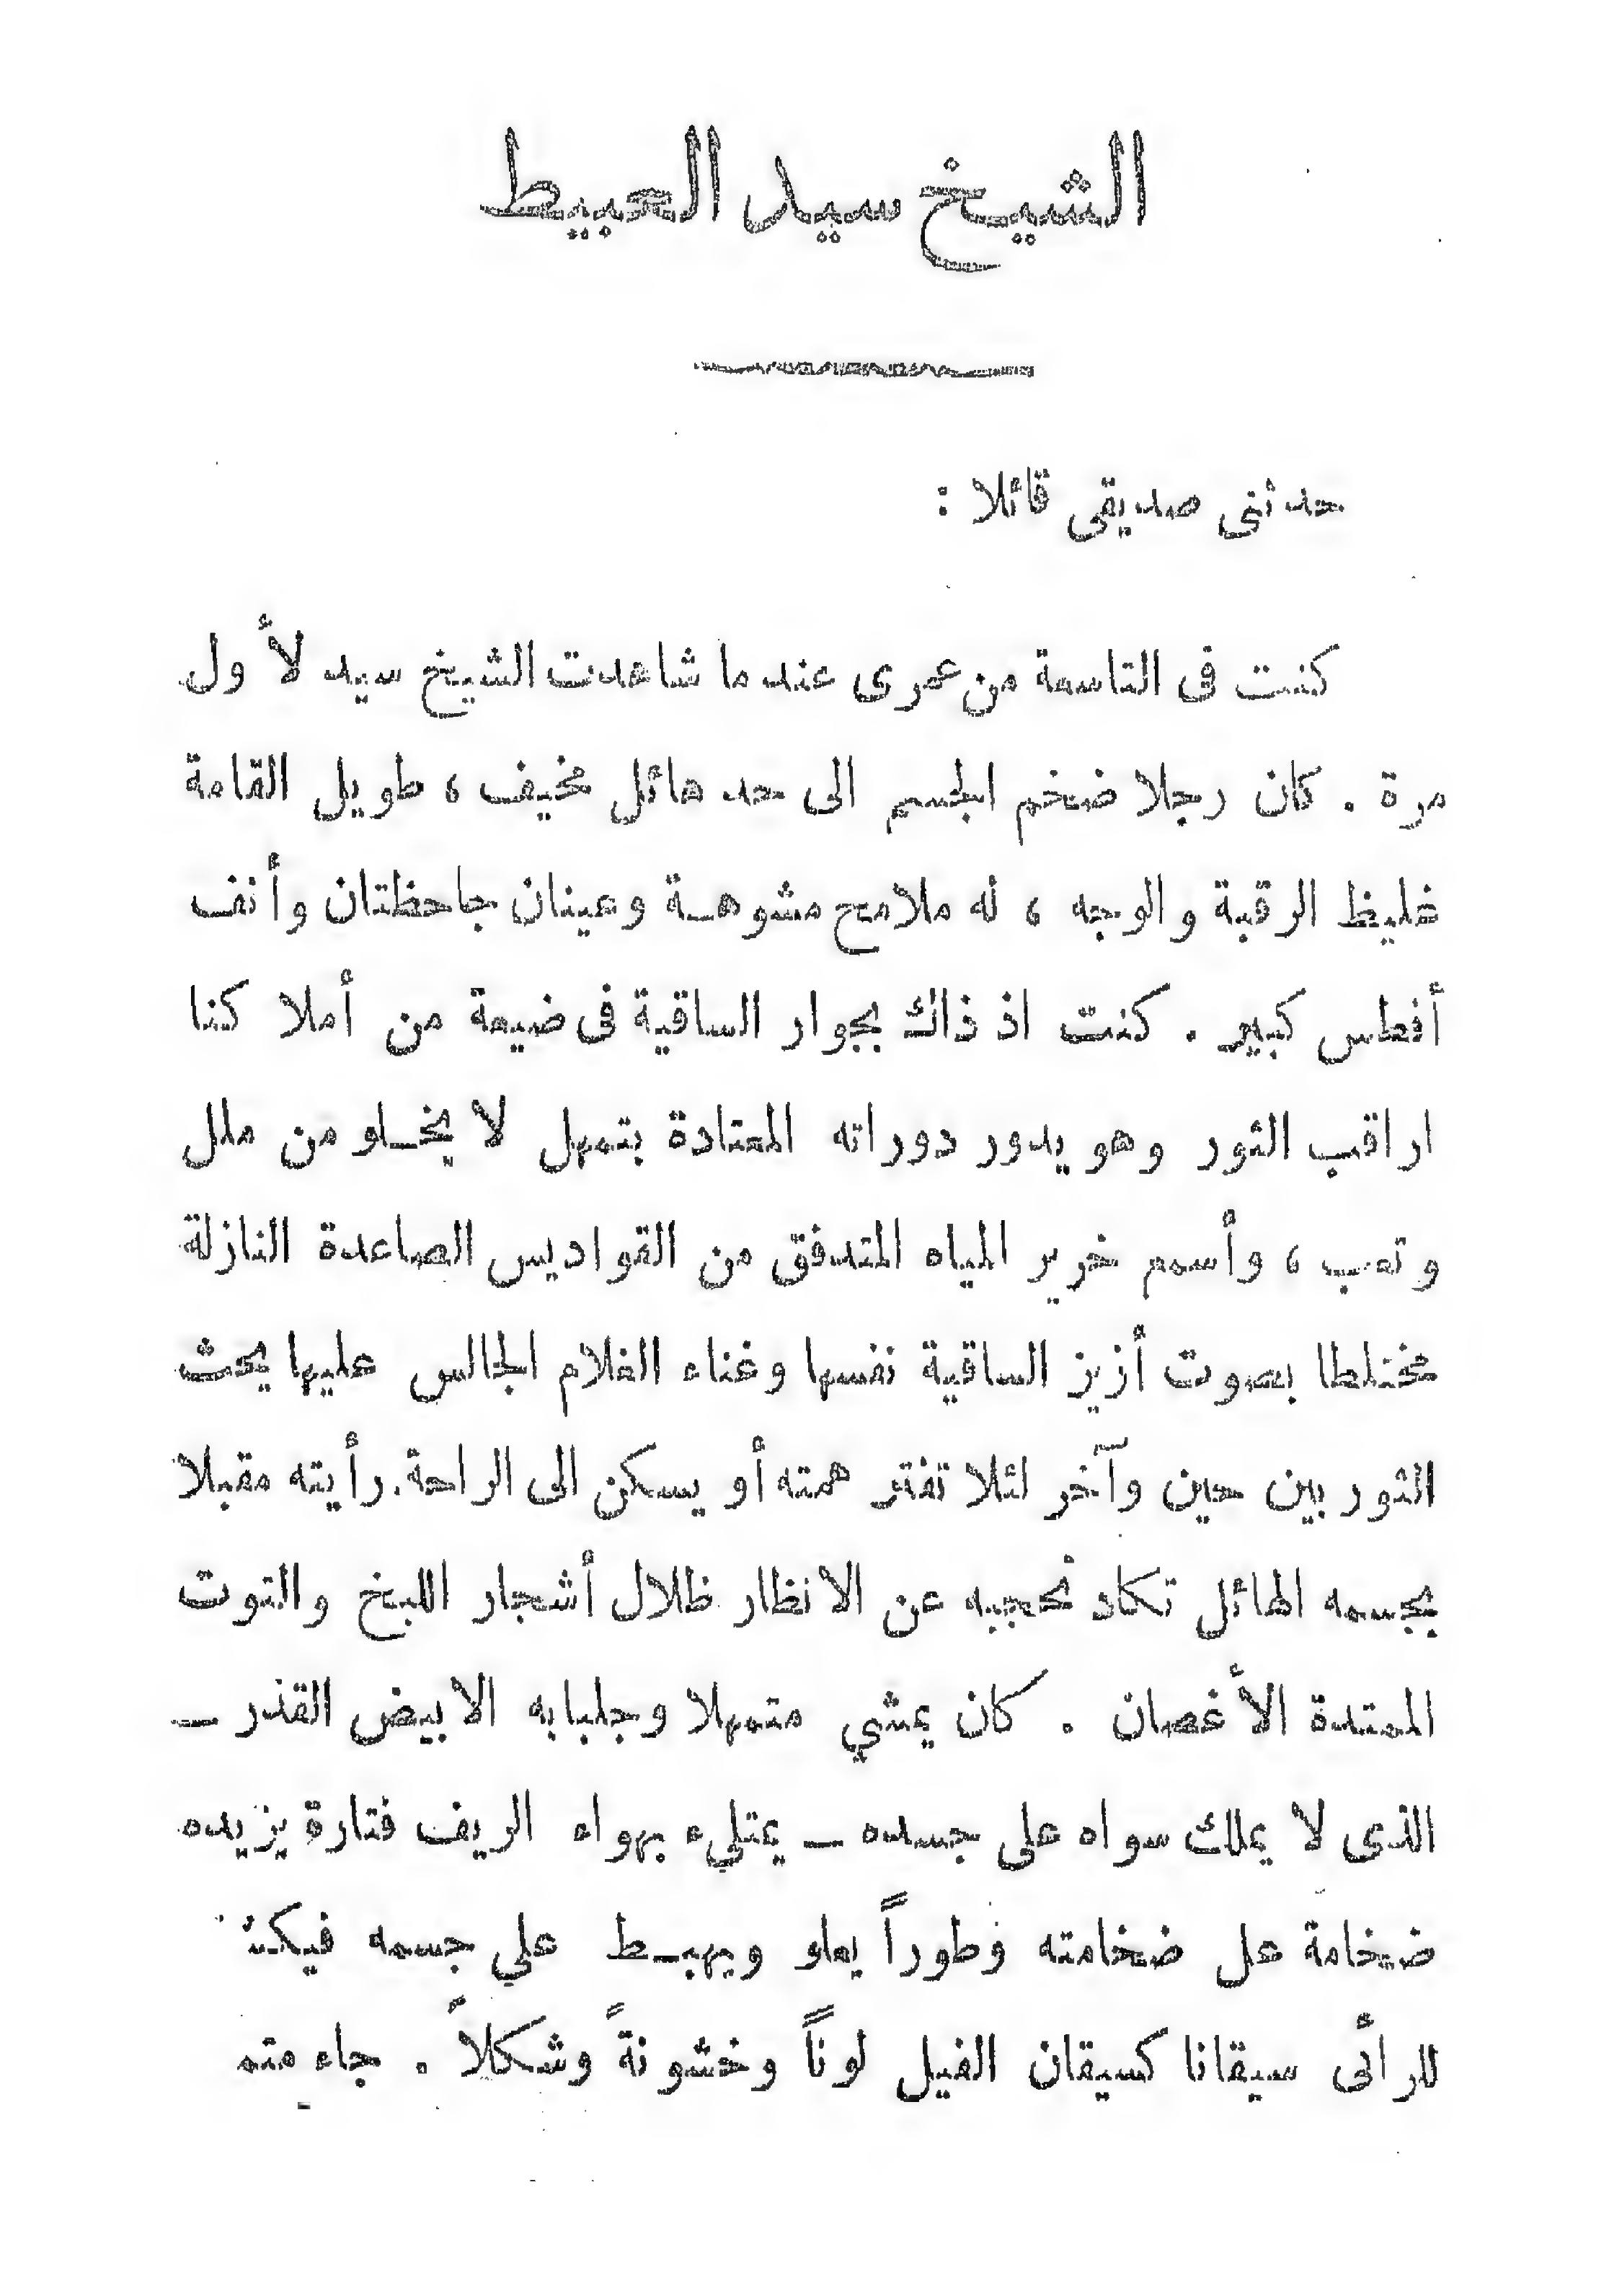 الشيخ سيد العبيط
حدثنى صديقى قائلا :
كنت فى التاسعة من عمرى عندما شاهدت الشيخ سيد لأول
مرة . كان رجلا ضخم الجسم الى حد هائل مخيف ، طويل القامة
غليظ الرقبة والوجه ، له ملامح مشوهة وعينان جاحظتان وأنف
أفطس كبير . كنت اذ ذاك بجوار الساقية فى ضيعة من أملاكنا
اراقب الثور وهو يدور دوراته المعتادة بتمهل لا يخلو من ملل
وتعب ، وأسمع خرير المياه المتدفق من القواديس الصاعدة النازلة
مختلطا بصوت أزيز الساقية نفسها وغناء الغلام الجالس عليها يحث
الثور بين حين وآخر لئلا تفتر همته أو يسكن الى الراحة. رأيته مقبلا
بجسمه الهائل تكاد تحجبه عن الانظار ظلال أشجار اللبخ والتوت
الممتدة الأغصان . كان يمشي متمهلا وجلبابه الابيض القذر ــ
الذى لا يملك سواه على جسده ــ يمتليء بهواء الريف فتارة يزيده
ضخامة عل ضخامته وطوراً يعلو ويهبط علي جسمه
للرأئى سيقانا كسيقان الفيل لوناً وخشونةً وشكلاً . جاء